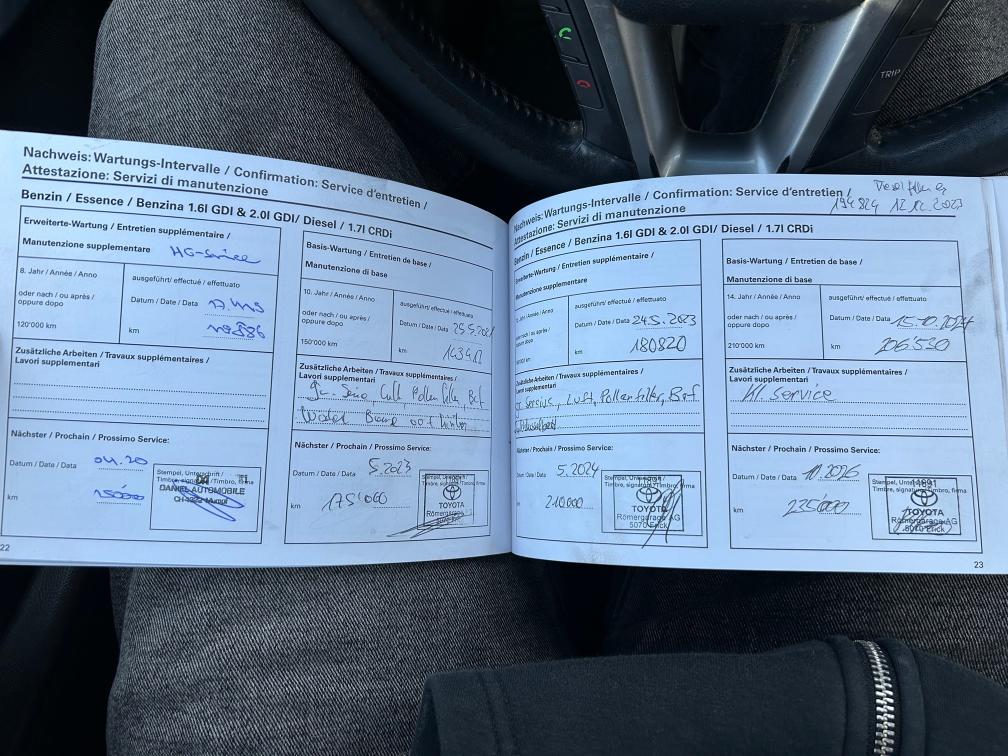 TRIP
Nachweis: Wartungs-Intervalle / Confirmation: Service d'entretien /
Attestazione: Servizi di manutenzione
Benzin / Essence / Benzina 1.6l GDI & 2.0l GDI/ Diesel / 1.7l CRDi
Erweiterte-Wartung / Entretien supplémentaire /
Manutenzione supplementare HG-Service
8. Jahr / Année / Anno
ausgeführt/ effectué / effettuato
oder nach / ou après /
oppure dopo
Datum / Date / Data
120'000 km
km
Zusätzliche Arbeiten / Travaux supplémentaires /
Lavori supplementari
Nächster / Prochain / Prossimo Service:
Datum / Date / Data 04.20
km
Stempel, Unterschrift /
DANIEL AUTOMOBILE
22
Basis-Wartung / Entretien de base /
Manutenzione di base
10. Jahr / Année / Anno
ausgeführt/ effectué / effettuato
oder nach / ou après /
oppure dopo
Datum / Date / Data
150'000 km
km
Zusätzliche Arbeiten / Travaux supplémentaires /
Lavori supplementari
Nächster / Prochain / Prossimo Service:
Datum / Date / Data 5.2023
km 175'000
Stempel, Unterschrift /
Timbre, signature/Timbro, firma
TOYOTA
Römergarage AG
5070 Frick
Nachweis: Wartungs-Intervalle / Confirmation: Service d'entretien /
Attestazione: Servizi di manutenzione
194824 12.12.2023
Benzin / Essence / Benzina 1.6l GDI & 2.0l GDI/ Diesel / 1.7l CRDi
Erweiterte-Wartung / Entretien supplémentaire /
Manutenzione supplementare
Jahr / Année / Anno
ausgeführt/ effectué / effettuato
oder nach / ou après /
oppure dopo
Datum / Date / Data 24.5.2023
km 180820
Zusätzliche Arbeiten / Travaux supplémentaires /
Lavori supplementari
Luft, Pollenfilter,
Nächster / Prochain / Prossimo Service:
Datum / Date / Data 5.2024
210000
Stempel, Unterschrift /
Timbre, signature/Timbro, firma
TOYOTA
Römergarage AG
5070 Frick
Basis-Wartung / Entretien de base /
Manutenzione di base
14. Jahr / Année / Anno
ausgeführt/ effectué / effettuato
oder nach / ou après /
oppure dopo
Datum / Date / Data 15.10.2024
210'000 km
km 206530
Zusätzliche Arbeiten / Travaux supplémentaires /
Lavori supplementari
Kl. Service
Nächster / Prochain / Prossimo Service:
Datum / Date / Data
km 235'000
Stempel, Unterschrift /
Timbre, signature/Timbro, firma
TOYOTA
Römergarage AG
5070 Frick
23